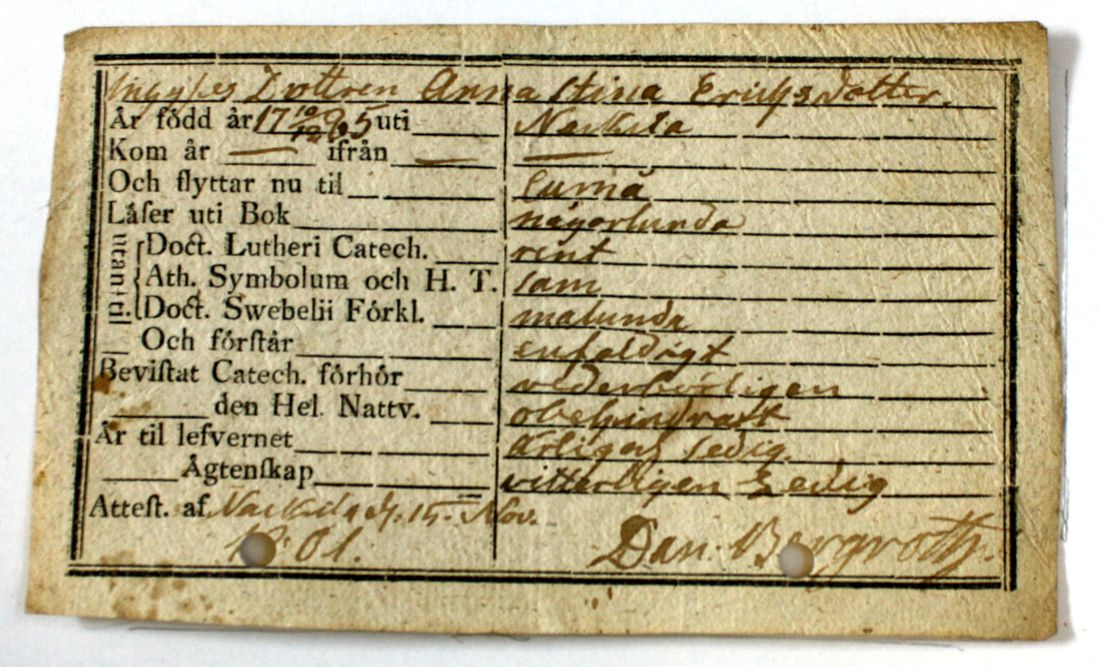 Dottren Anna Stina Erichsdotter.
År född år 17 10/12 85 uti Nackila
Kom år — ifrån — —
Och flyttar nu til Eumå
Läſer uti Bok någorlunda
utan-til. Doct. Lutheri Catech. rent
Ath. Symbolum och H. T. sam
Doct. Swebelii Förkl. malunda
Och förſtår enfaldigt
Beviſtat Catech. förhör vederbörligen
den Hel. Nattv. obehindradt
Är til lefvernet ärlig och sedig.
Ägtenſkap vitterligen Ledig
Atteſt. af Nackila d. 15. Nov.
1801. Dan. Bergroth.